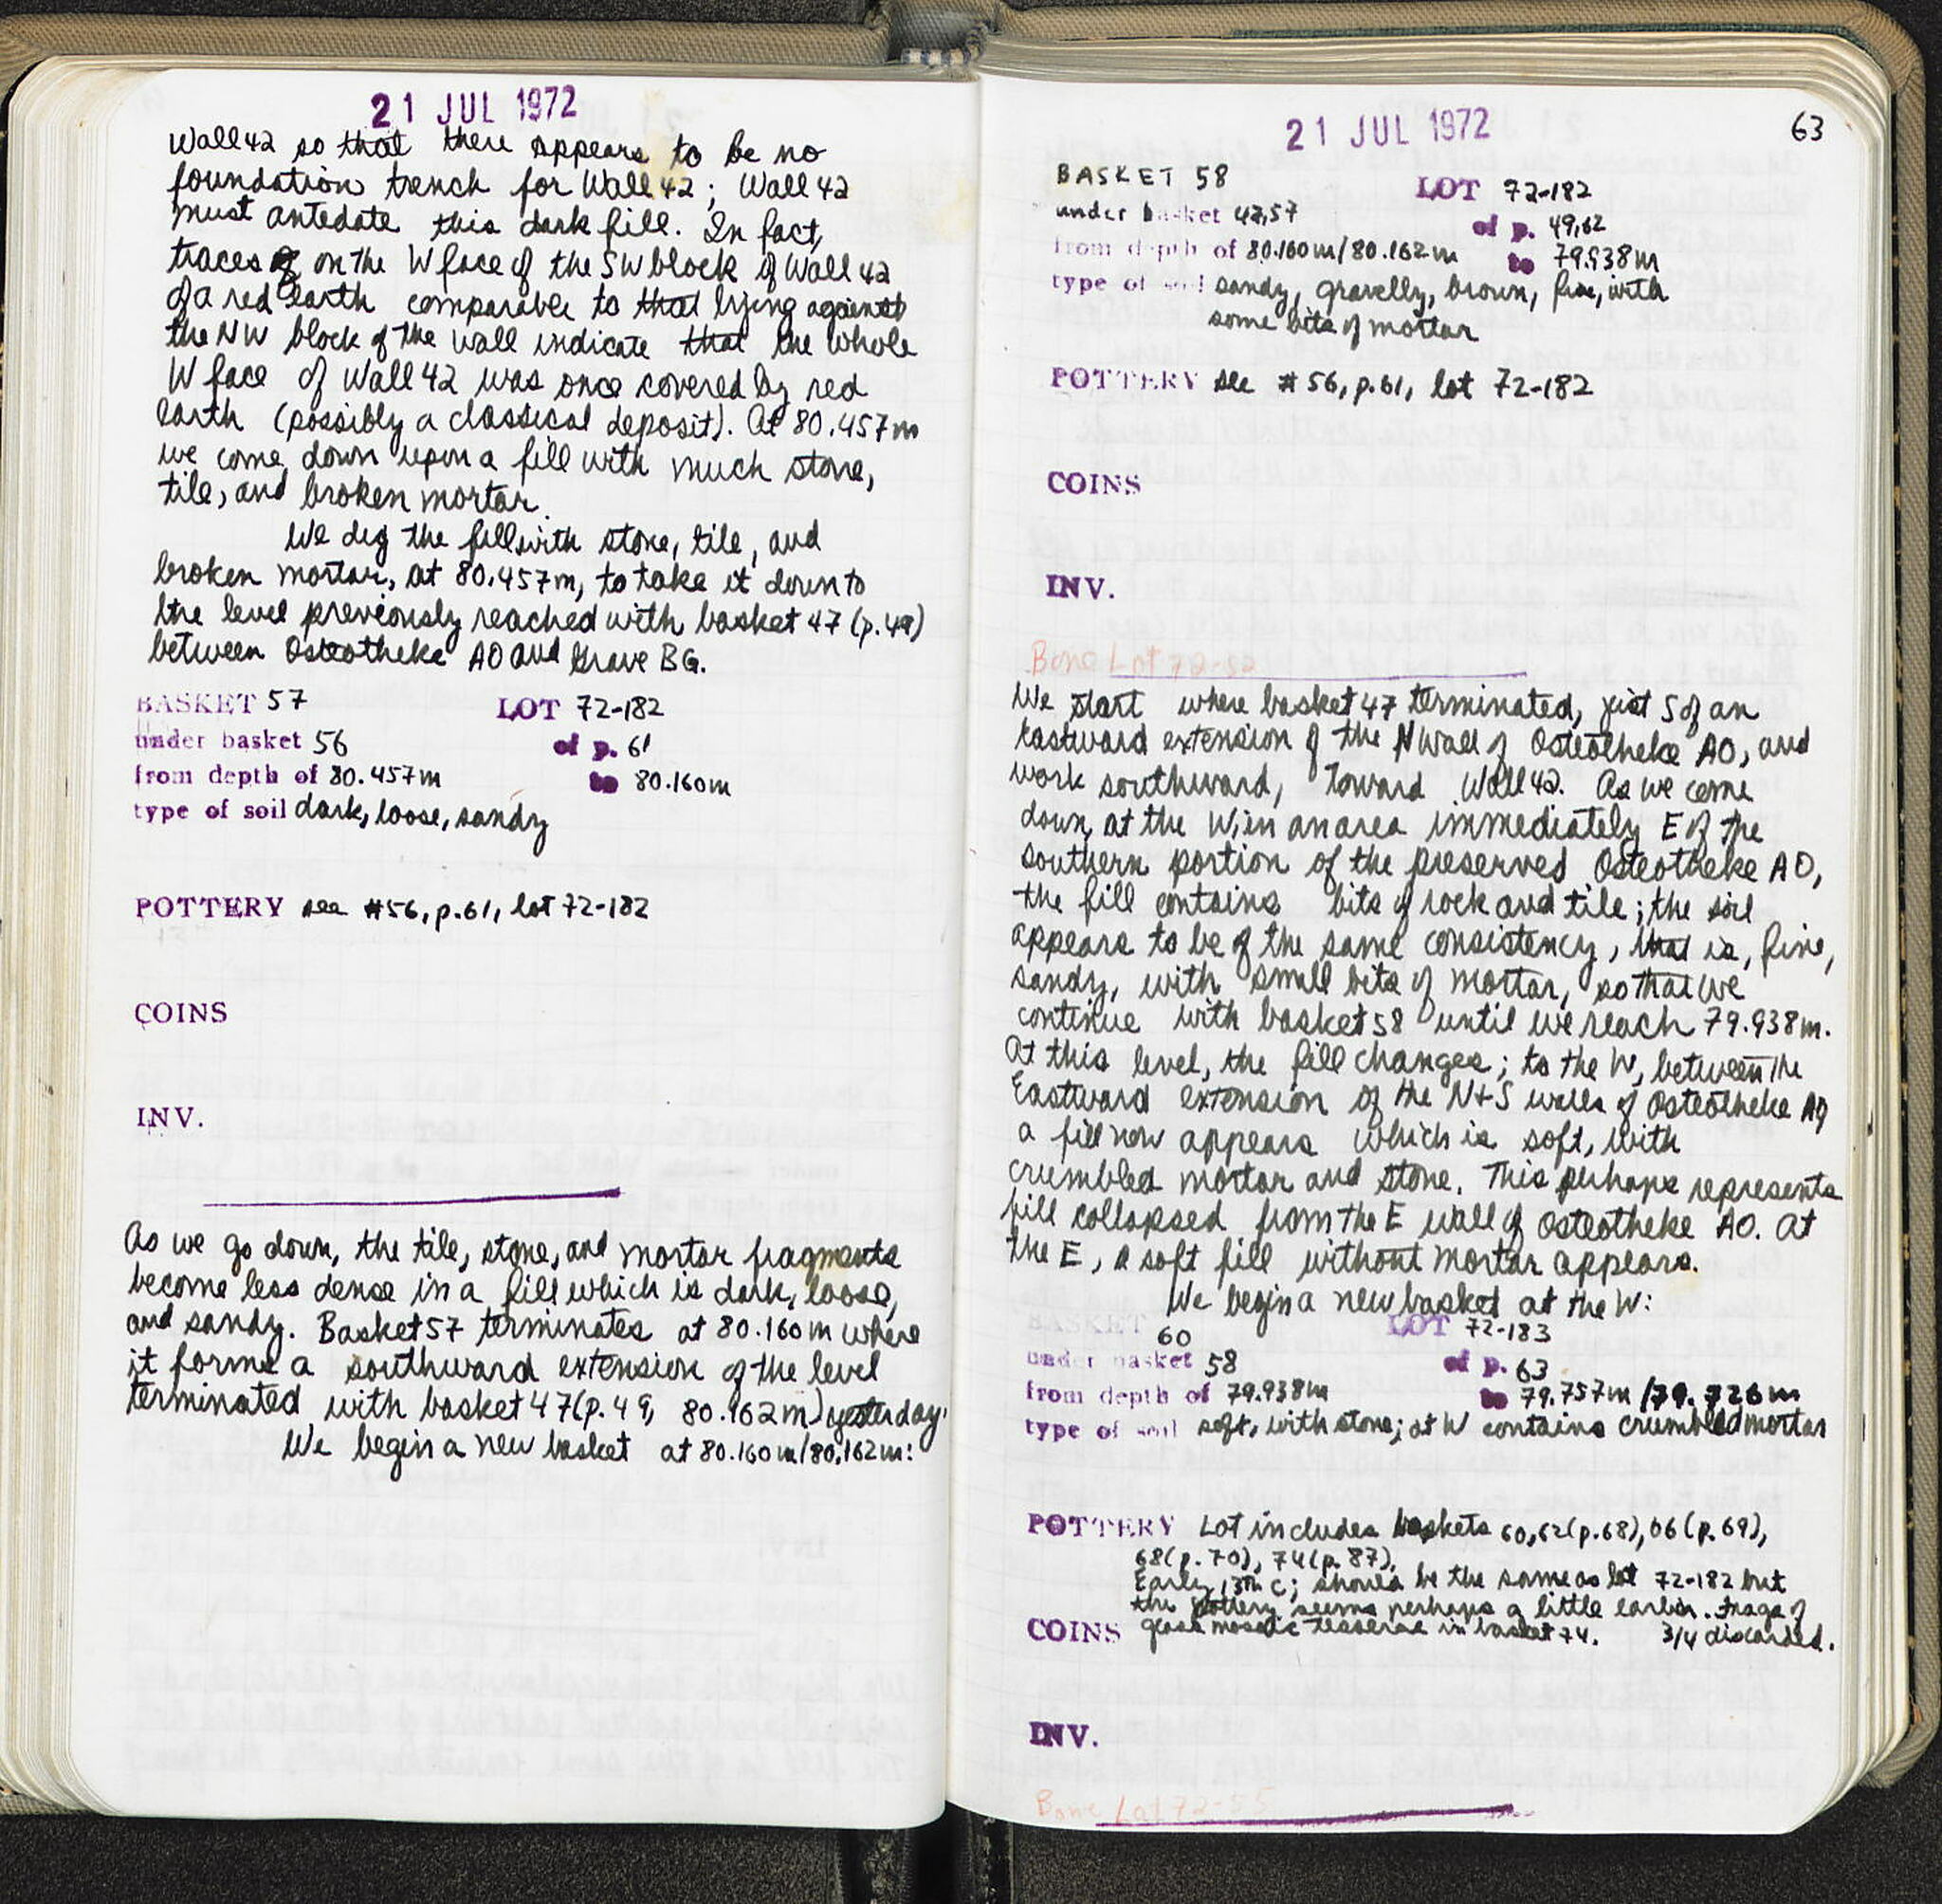 21 JUL 1972
Wall 42 so that there appears to be no
foundation trench for Wall 42; Wall 42
must antedate this dark fill. In fact,
traces on the W face of the SW block of Wall 42
of a red earth comparable to that lying against
the NW block of the wall indicate that the whole
W face of Wall 42 was once covered by red
earth (possibly a classical deposit). At 80.457m
we come down upon a fill with much stone,
tile, and broken mortar.
We dig the fill with stone, tile, and
broken mortar, at 80.457m, to take it down to
the level previously reached with basket 47 (p.49)
between Osteotheke AO and Grave BG.
BASKET 57 LOT 72-182
under basket 56 of p. 61
from depth of 80.457m to 80.160m
type of soil dark, loose, sandy
POTTERY see #56, p.61, lot 72-182
COINS
INV.
As we go down, the tile, stone, and mortar fragments
become less dense in a fill which is dark, loose,
and sandy. Basket 57 terminates at 80.160m where
it forms a southward extension of the level
terminated with basket 47 (p.49, 80.162m) yesterday.
We begin a new basket at 80.160m/80.162m:
21 JUL 1972
63
BASKET 58 LOT 72-182
under basket 47,57 of p. 49,62
from depth of 80.160m/80.162m to 79.938m
type of soil sandy, gravelly, brown, fine, with
some bits of mortar
POTTERY see #56, p.61, lot 72-182
COINS
INV.
Bone Lot 72-52
We start where basket 47 terminated, just S of an
eastward extension of the N wall of Osteotheke AO, and
work southward, toward Wall 42. As we come
down, at the W, in an area immediately E of the
southern portion of the preserved Osteotheke AO,
the fill contains bits of rock and tile; the soil
appears to be of the same consistency, that is, fine,
sandy, with small bits of mortar, so that we
continue with basket 58 until we reach 79.938m.
At this level, the fill changes; to the W, between the
Eastward extension of the N+S walls of Osteotheke AO
a fill now appears which is soft, with
crumbled mortar and stone. This perhaps represents
fill collapsed from the E wall of Osteotheke AO. At
the E, a soft fill without mortar appears.
We begin a new basket at the W:
BASKET 60 LOT 72-183
under basket 58 of p. 63
from depth of 79.938m to 79.757m/79.726m
type of soil soft, with stone; at W contains crumbled mortar
POTTERY Lot includes baskets 60, 62 (p.68), 66 (p.69),
68 (p.70), 74 (p.87).
Early 13th c; should be the same as lot 72-182 but
the pottery seems perhaps a little earlier. Frags of
COINS glass mosaic tesserae in basket 74. 3/4 discarded.
INV.
Bone Lot 72-55